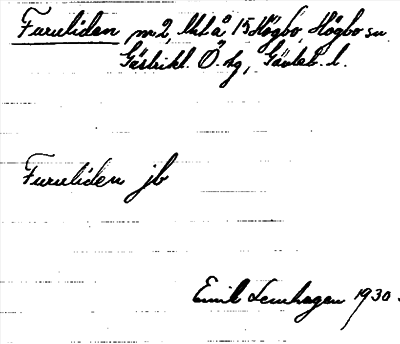 Furuliden m2, Utå 15 Högbo, Högbo sn.
Gästrikl. Ö. dg, Gävleb. l.
Furuliden jb
Emil Lemhagen 1930.